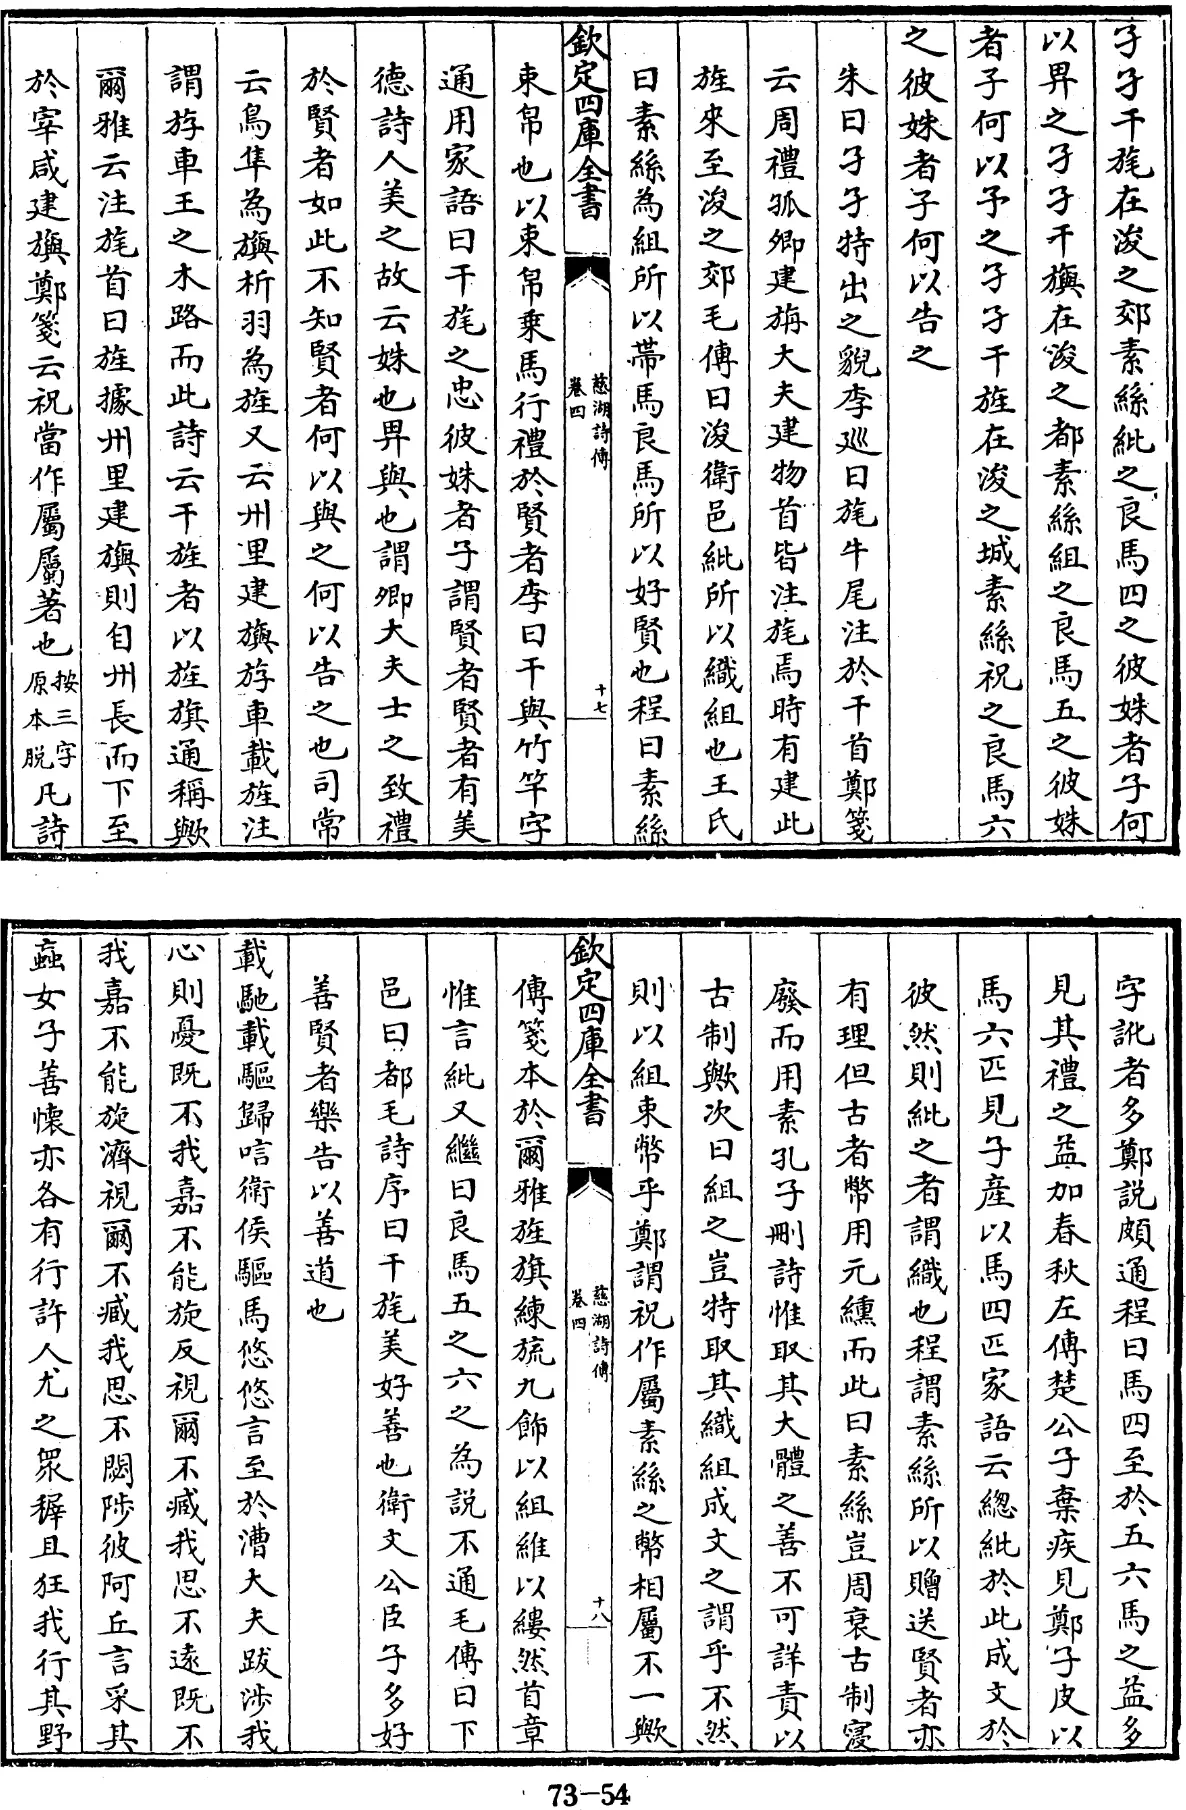 孑孑干旄在浚之郊素絲紕之良馬四之彼姝者子何
以畀之孑孑干旟在浚之都素絲組之良馬五之彼姝
者子何以予之孑孑干旌在浚之城素絲祝之良馬六
之彼姝者子何以告之
朱曰孑孑特出之貌李廵曰旄牛尾注於干首鄭箋
云周禮孤卿建旃大夫建物首皆注旄焉時有建此
旌來至浚之郊毛傳曰浚衛邑紕所以織組也王氏
曰素絲為組所以帶馬良馬所以好賢也程曰素絲
欽定四庫全書
慈湖詩傳
卷四
十七
束帛也以束帛乗馬行禮於賢者李曰干與竹竿字
通用家語曰干旄之忠彼姝者子謂賢者賢者有美
德詩人美之故云姝也畀與也謂卿大夫士之致禮
於賢者如此不知賢者何以與之何以告之也司常
云鳥隼為旟析羽為旌又云州里建旟斿車載旌注
謂斿車王之木路而此詩云干旌者以旌旗通稱歟
爾雅云注旄首曰旌據州里建旟則自州長而下至
於宰咸建旟鄭箋云祝當作屬屬著也按三字原本脱凡詩
字訛者多鄭説頗通程曰馬四至於五六馬之益多
見其禮之益加春秋左傳楚公子棄疾見鄭子皮以
馬六匹見子產以馬四匹家語云總紕於此成文於
彼然則紕之者謂織也程謂素絲所以贈送賢者亦
有理但古者幣用元纁而此曰素絲豈周衰古制寖
廢而用素孔子刪詩惟取其大體之善不可詳責以
古制歟次曰組之豈特取其織組成文之謂乎不然
則以組束幣乎鄭謂祝作屬素絲之幣相屬不一歟
欽定四庫全書
慈湖詩傳
卷四
十八
傳箋本於爾雅旌旗練旒九飾以組維以縷然首章
惟言紕又繼曰良馬五之六之為説不通毛傳曰下
邑曰都毛詩序曰干旄美好善也衛文公臣子多好
善賢者樂告以善道也
載馳載驅歸唁衛侯驅馬悠悠言至於漕大夫跋涉我
心則憂既不我嘉不能旋反視爾不臧我思不遠既不
我嘉不能旋濟視爾不臧我思不閟陟彼阿丘言采其
蝱女子善懷亦各有行許人尤之衆穉且狂我行其野
73-54